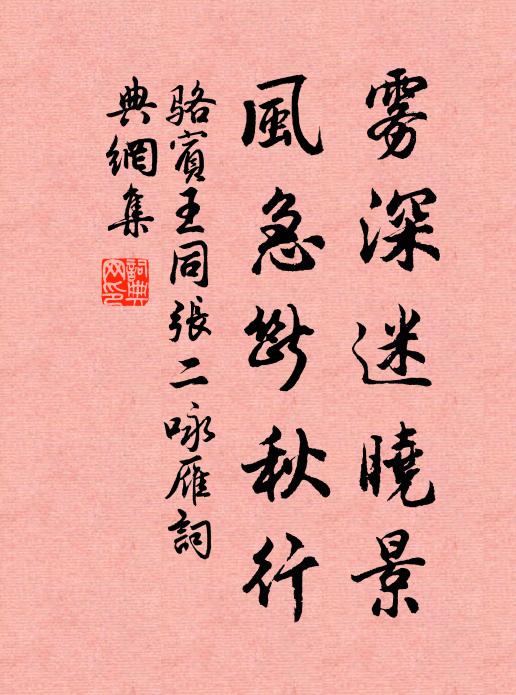 雾深迷曉景
風急断秋行
駱賓王同張二咏雁詞
典網集
詞典
网印